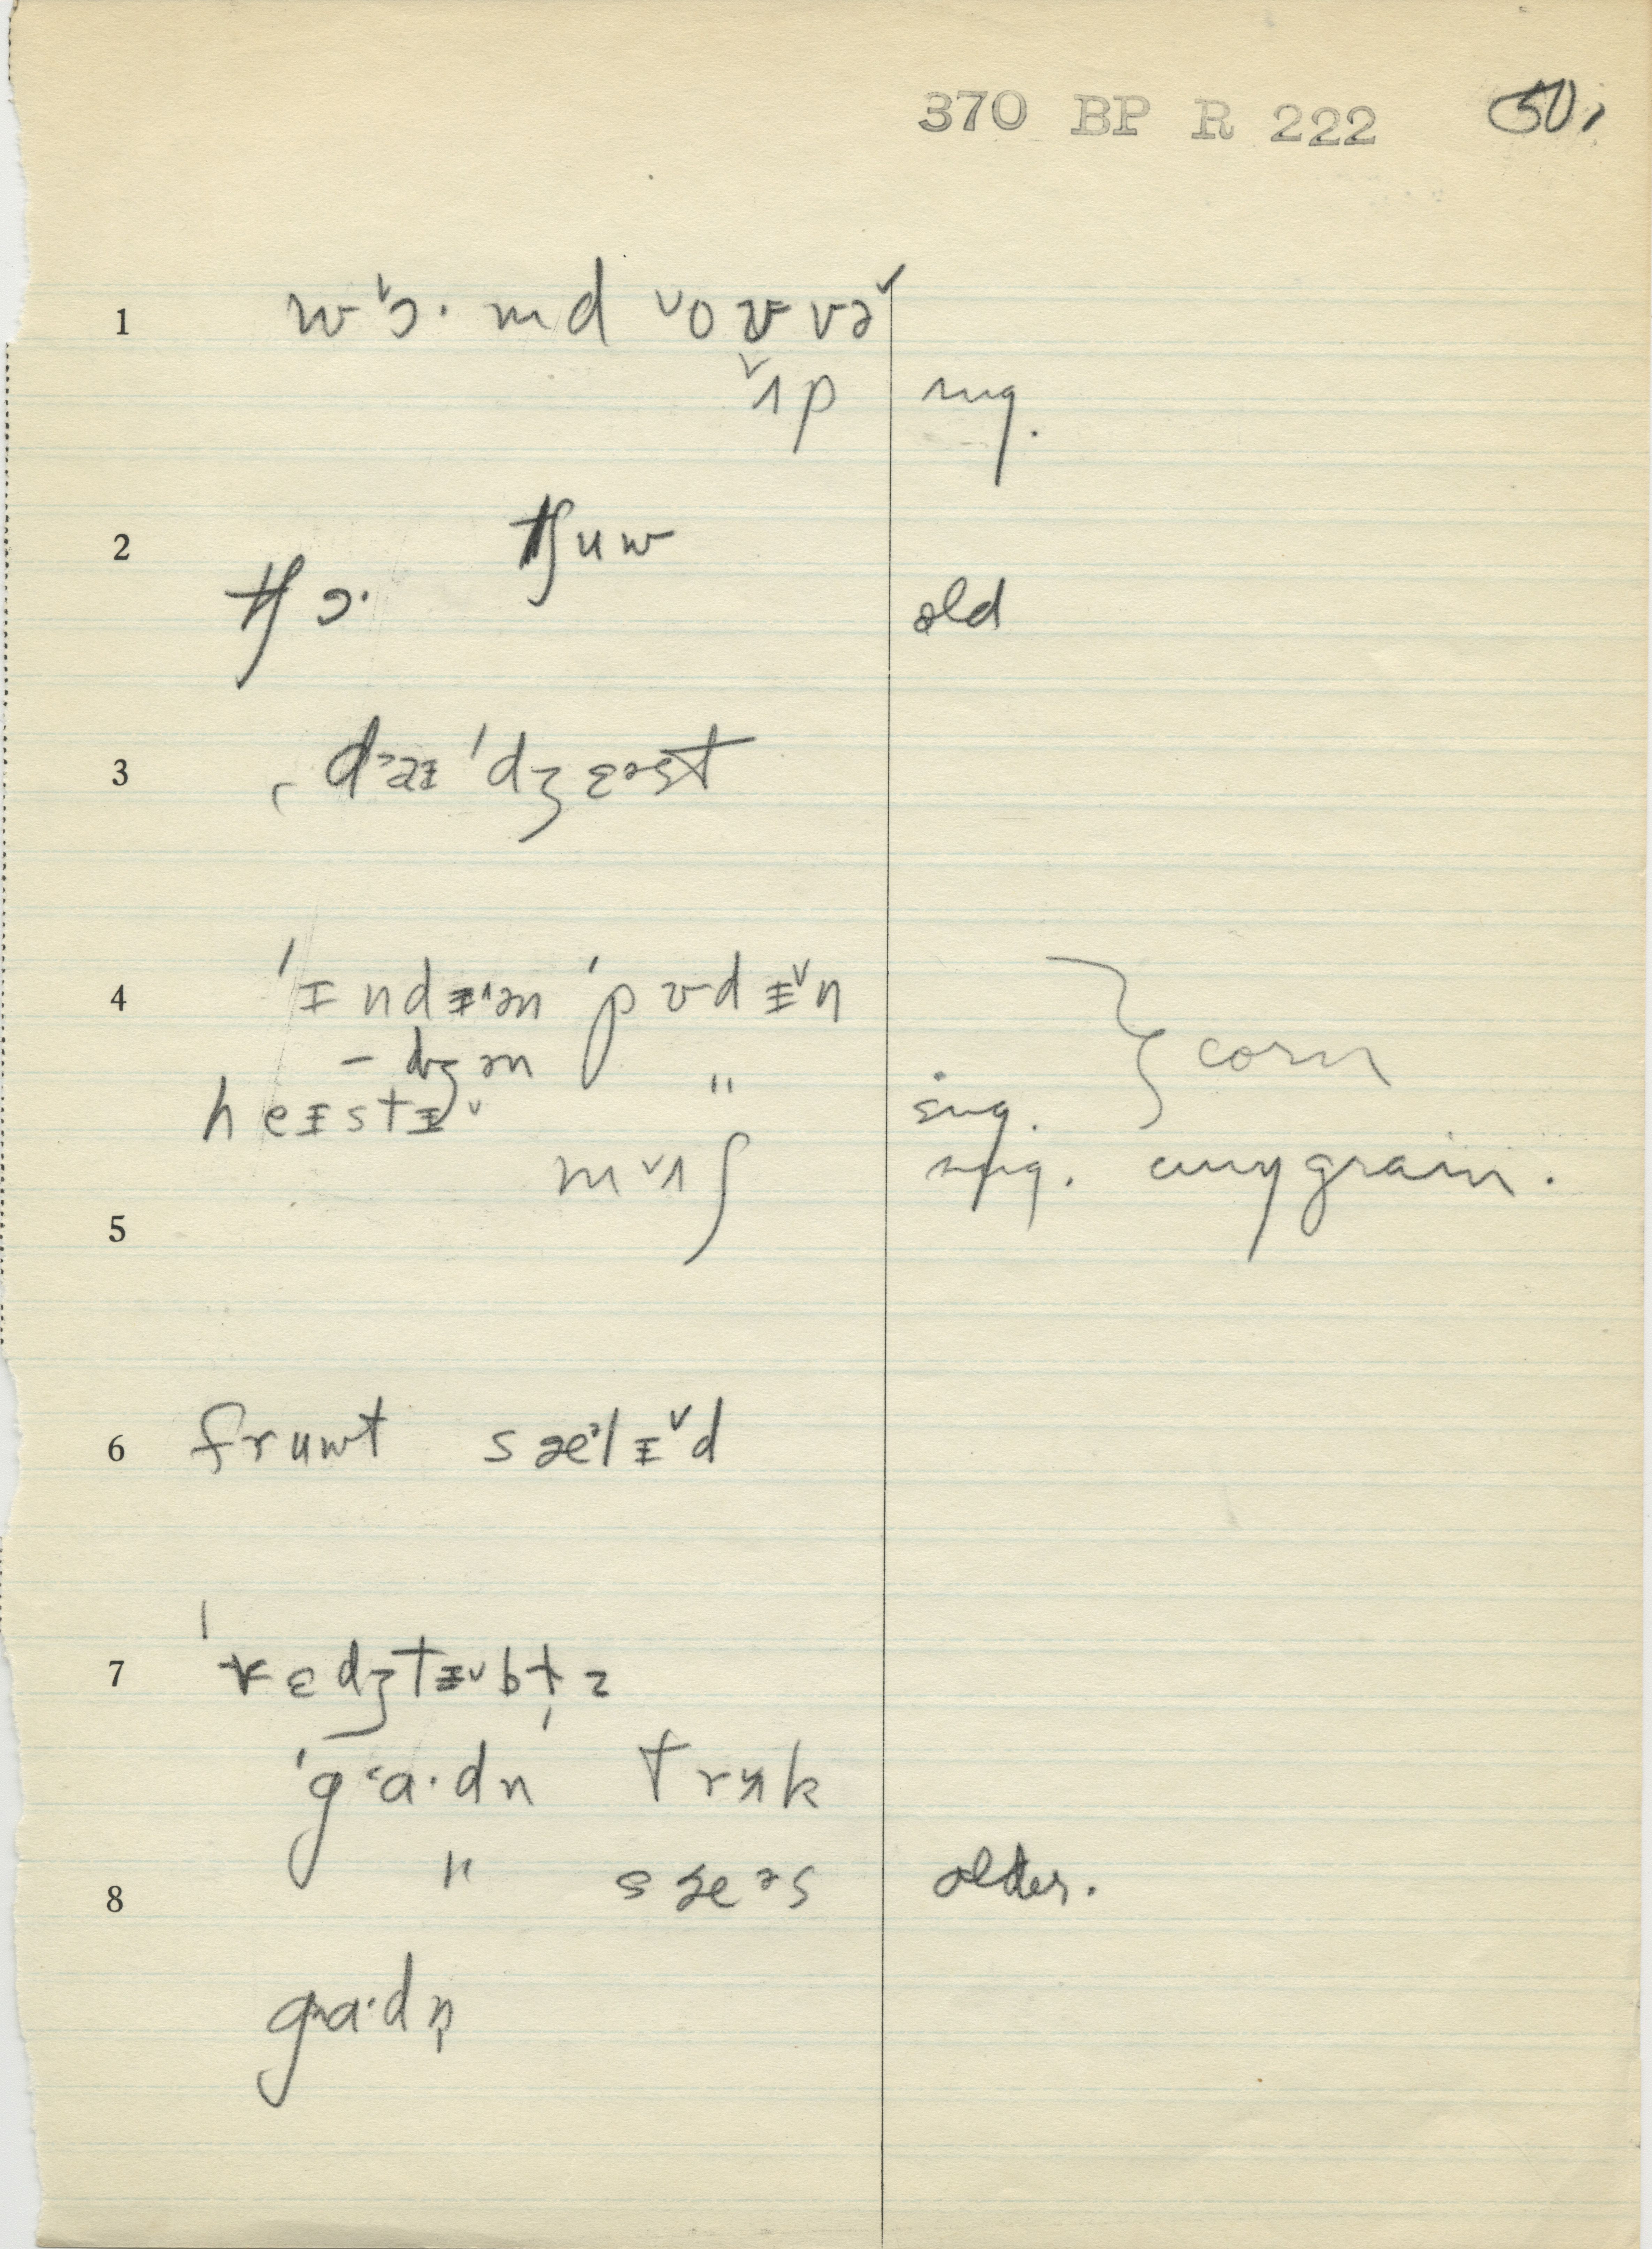 370 BP R 222 50.
1 wˈɔ· md ˅oʊ və˅
˅ʌp sug.
2 tʃuw
tʃɔ· old
3 dɑɪˈdʒɛəst
4 ˈɪndɪˈən ˈpʊdɪ˅n
- dʒən " } corn
heɪstɪ˅ sug.
m˅ʌʃ sug. any grain.
5
6 fruwt sæˈlɪ˅d
7 ˈvɛdʒtɪ˅bɫ̩z
ˈgɑ·dn trʌk
8 " sæəs older.
gɑ·dn̩